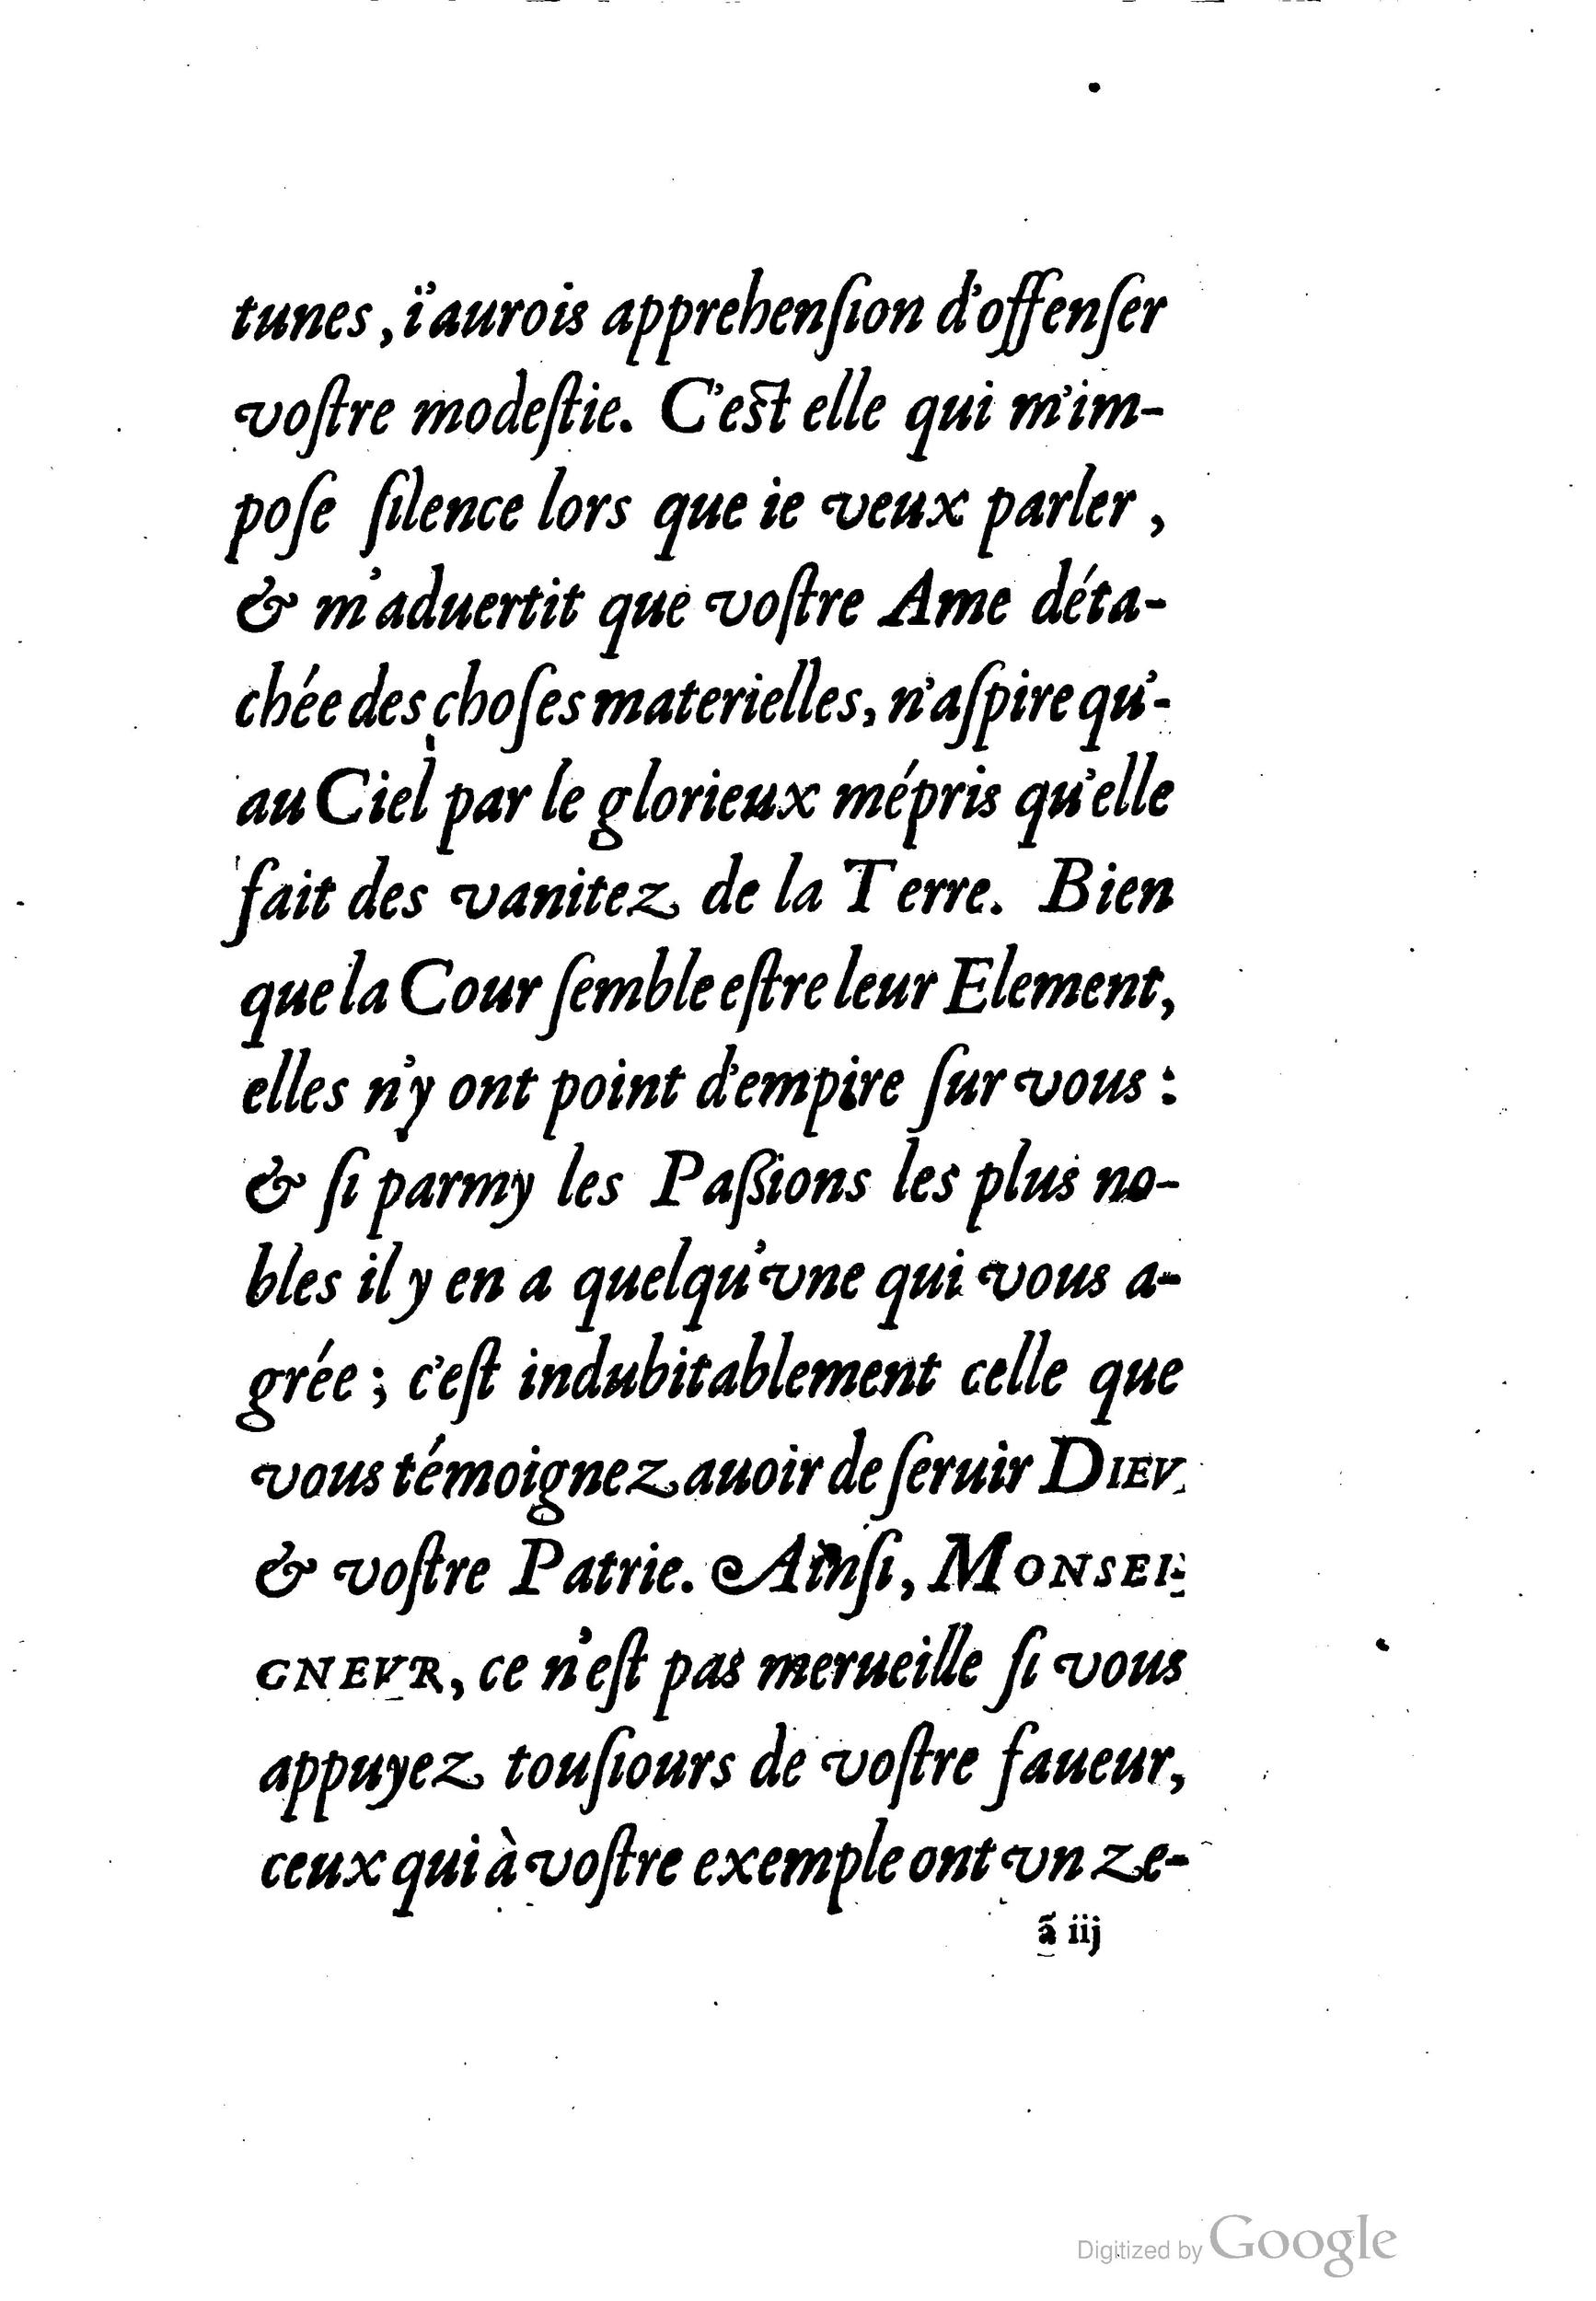 tunes, i'aurois apprehenſion d'offenſer
voſtre modeſtie. C'eſt elle qui m'im-
poſe ſilence lors que ie veux parler,
& m'aduertit que voſtre Ame déta-
chée des choſes materielles, n'aſpire qu'-
au Ciel par le glorieux mépris qu'elle
fait des vanitez de la Terre. Bien
que la Cour ſemble eſtre leur Element,
elles n'y ont point d'empire ſur vous :
& ſi parmy les Paßions les plus no-
bles il y en a quelqu'vne qui vous a-
grée ; c'eſt indubitablement celle que
vous témoignez auoir de ſeruir DIEV
& voſtre Patrie. Ainſi, MONSEI-
GNEVR, ce n'eſt pas merueille ſi vous
appuyez touſiours de voſtre faueur,
ceux qui à voſtre exemple ont vn ze-
ã iij
Digitized by Google